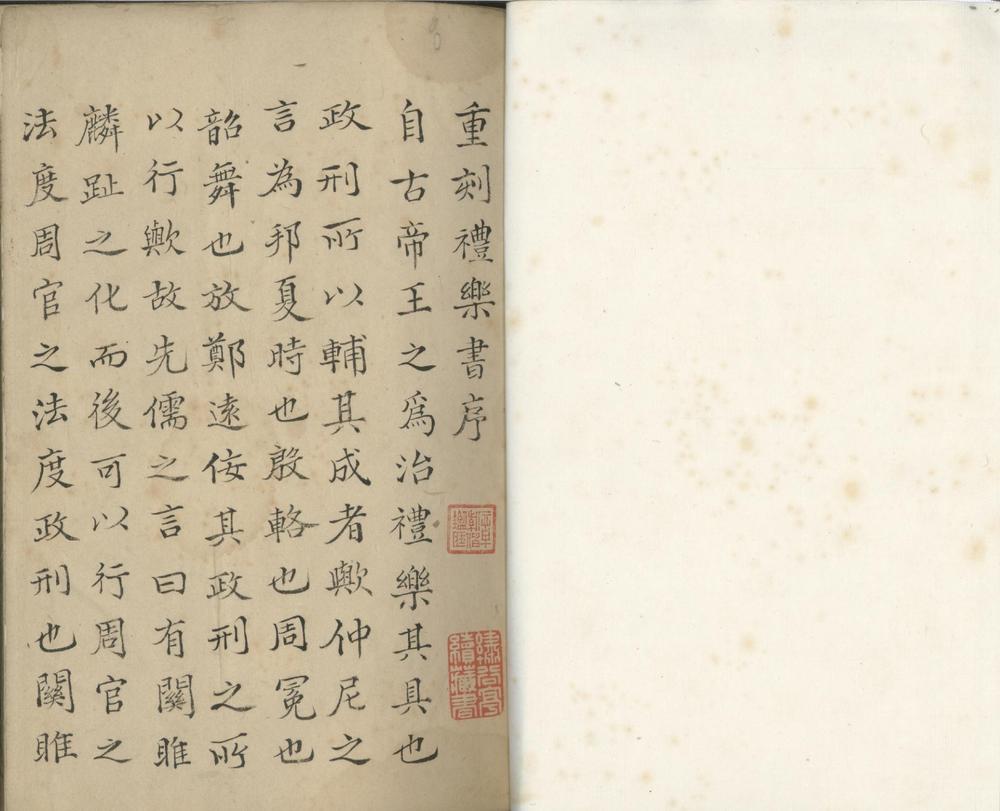 重刻禮樂書序
自古帝王之爲治禮樂其具也
政刑所以輔其成者歟仲尼之
言為邦夏時也殷輅也周冕也
韶舞也放鄭遠佞其政刑之所
以行歟故先儒之言曰有關雎
麟趾之化而後可以行周官之
法度周官之法度政刑也關雎